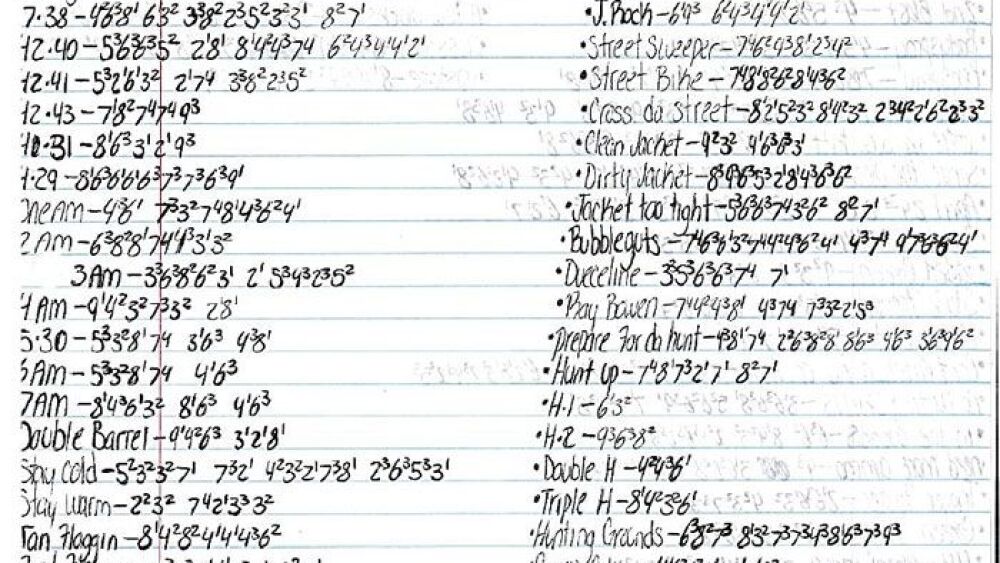 7·38 – 4²6³8¹ 6¹3² 3³8²2³5²3²3¹ 8²7¹
12·40 – 5³6³6³5² 2¹8¹ 8¹4²4³7⁴ 6²4³4¹4¹2¹
12·41 – 5³2¹6¹3² 2¹7⁴ 3³8²2³5²
12·43 – 7¹8²7⁴7⁴9³
10·31 – 8¹6³3¹2¹9³
29 – 8¹6³6¹6¹6³7³7³6³9¹
One Am – 4³6¹ 7³3²7⁴8¹4³6²4¹
2 Am – 6³8²8¹7⁴4³3¹3²
3Am – 3³6³8²6²3¹ 2¹ 5³4³2³5²
4Am – 9¹4²3²7³3² 2¹8¹
5·30 – 5³3²8¹7⁴ 3¹6³ 4³8¹
Am – 5³3²8¹7⁴ 4¹6³
7AM – 8¹4³6¹3² 8¹6³ 4¹6³
Double Barrel – 9¹4²6³ 3¹2¹8¹
Stay cold – 5²3²3²7¹ 7³3²2¹ 4²3²2¹7³8¹ 2³6³5³3¹
Stay warm – 2²3² 7⁴2¹3³3²
Fan Flaggin – 8¹4²8²4¹4¹4³6²
•J. Rock – 6¹9³ 6²4³4¹4¹2¹
•Street Sweeper – 7⁴6²4³8¹2³4²
•Street Bike – 7⁴8¹8²6²8¹4³6²
•Cross da street – 8²2¹5²3² 8¹4²3² 2³4²2¹6²2³3²
•Clean Jacket – 9²3² 9¹6³6³3¹
•Dirty Jacket – 8³4³6³5³2¹8¹4³6³6²
•Jacket too tight – 5³6³6³7⁴3²6² 8²7¹
•Bubbleguts – 7⁴6³6¹3²7⁴4²4³6²4¹ 4³7⁴ 9¹7³6³6²4¹
•Dueceline – 3³5³6³6³7⁴ 7¹
•Ray Bowen – 7⁴4²4³8¹ 4³7⁴ 7³3²2¹5³
•Prepare For da hunt – 4³8¹7⁴ 2²6³8²8¹ 8¹6³ 4¹6³ 3¹6³9¹6²
•Hunt up – 7⁴8¹7³2¹7¹ 8²7¹
•H.1 – 6¹3²
•H.2 – 9³6³8²
•Double H – 4²4³6¹
•Triple H – 8¹4²3²6¹
•Hunting Grounds – 6³8²7³ 8¹3²7³7³4³8¹6³7³9³